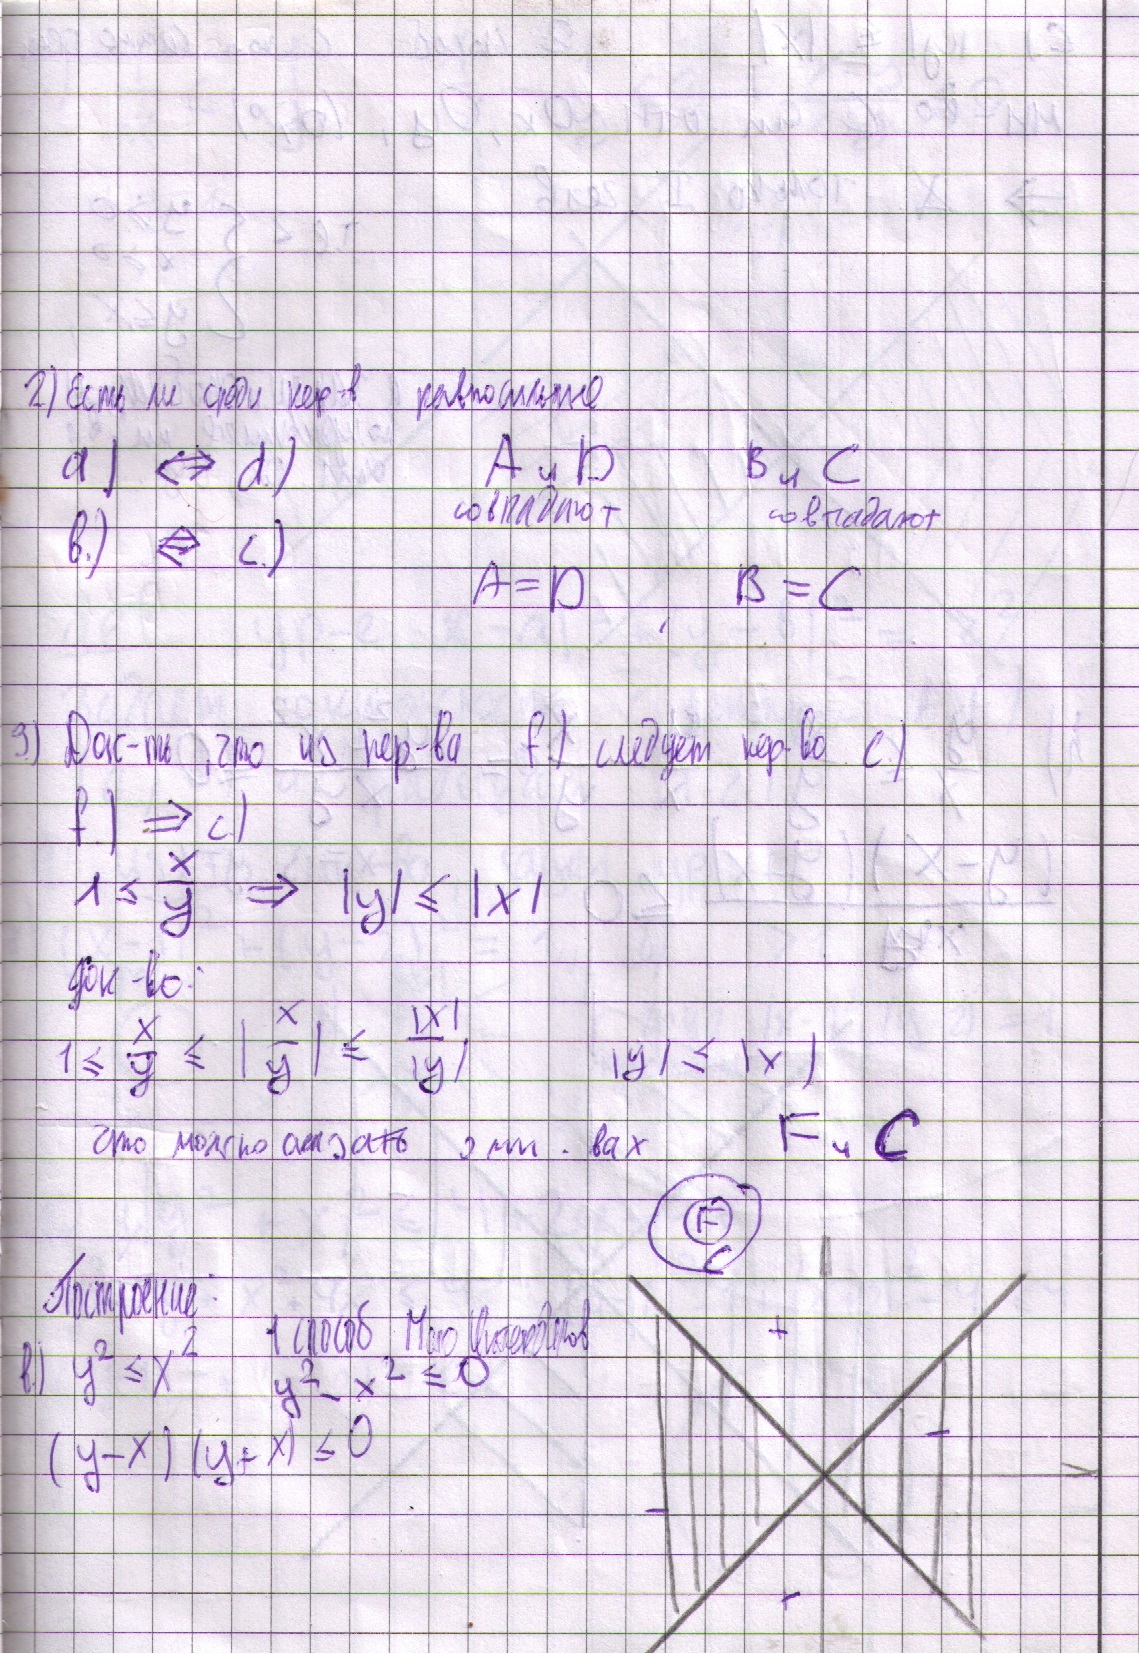 2) Есть ли среди нер-в равносильные
a.) ⇔ d.) A и D B и C
совпадают совпадают
b.) ⇔ c.)
A = D B = C
3) Док-ть, что из нер-ва f.) следует нер-во c.)
f.) ⇒ c.)
1 ≤ x/y ⇒ |y| ≤ |x|
док-во:
1 ≤ x/y ≤ |x/y| ≤ |x|/|y| |y| ≤ |x|
что можно сказать о мн-вах F и C
F
C
Построение:
1 способ
b.) y² ≤ x² y² - x² ≤ 0
(y-x) (y+x) ≤ 0
+
-
-
+